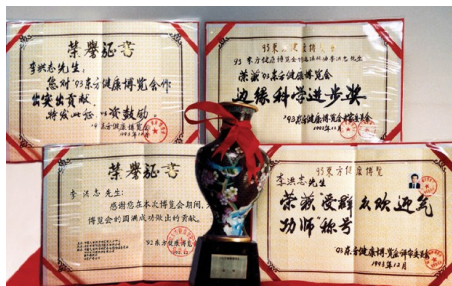 荣誉证书
李洪志先生：
您对'93东方健康博览会作
出突出贡献，
特发此证，以资鼓励
'93东方健康博览会
1993年12月
93东方健康博览
荣获'93东方健康博览会
边缘科学进步奖
'93东方健康博览会评审委员会
1993年12月
荣誉证书
李洪志先生：
感谢您在本次博览会期间，
博览会的圆满成功做出的贡献。
'92东方健康博览
93东方健康博览
李洪志先生
荣获"受群众欢迎气
功师"称号
'93东方健康博览会评审委员会
1993年12月